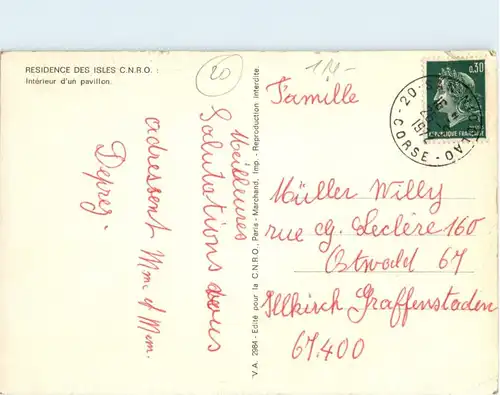 RESIDENCE DES ISLES C.N.R.O. :
Intérieur d'un pavillon.
20
Meilleures
Salutations vous
adressent Mme et Mem.
Deprez.
V.A. 2984 - Edité pour la C.N.R.O., Paris - Marchand, Imp. - Reproduction interdite.
1M-
0,30
REPUBLIQUE FRANÇAISE
20
CORSE
Famille
Müller Willy
rue cg. Leclère 160
Ostwald 67
Illkirch Graffenstaden
67.400